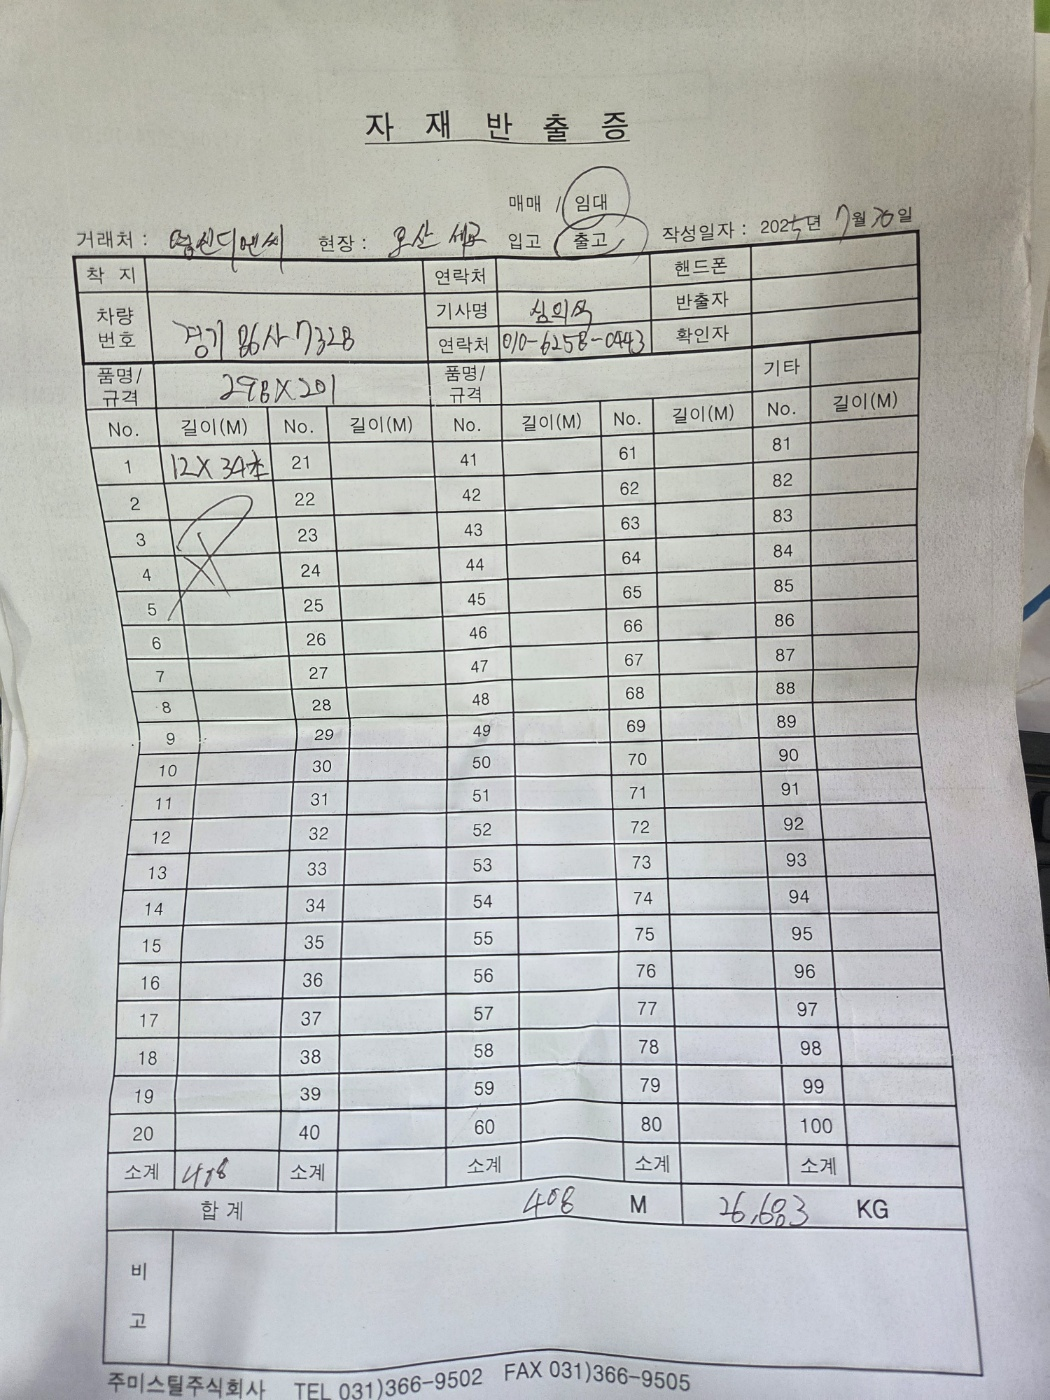 자 재 반 출 증
매매 / 임대
거래처 : 명신디엔씨 현장 : 오산 세교 입고 출고 작성일자 : 2025년 7월 26일
착 지 연락처 핸드폰
차량 번호 경기 86사 7328 기사명 심의섭 반출자
연락처 010-6258-0443 확인자
품명/규격 298X201 품명/규격 기타
No. 길이(M) No. 길이(M) No. 길이(M) No. 길이(M) No. 길이(M)
1 12X34本 21 41 61 81
2 22 42 62 82
3 23 43 63 83
4 24 44 64 84
5 25 45 65 85
6 26 46 66 86
7 27 47 67 87
8 28 48 68 88
9 29 49 69 89
10 30 50 70 90
11 31 51 71 91
12 32 52 72 92
13 33 53 73 93
14 34 54 74 94
15 35 55 75 95
16 36 56 76 96
17 37 57 77 97
18 38 58 78 98
19 39 59 79 99
20 40 60 80 100
소계 408 소계 소계 소계 소계
합 계 408 M 26,683 KG
비 고
주미스틸주식회사 TEL 031)366-9502 FAX 031)366-9505